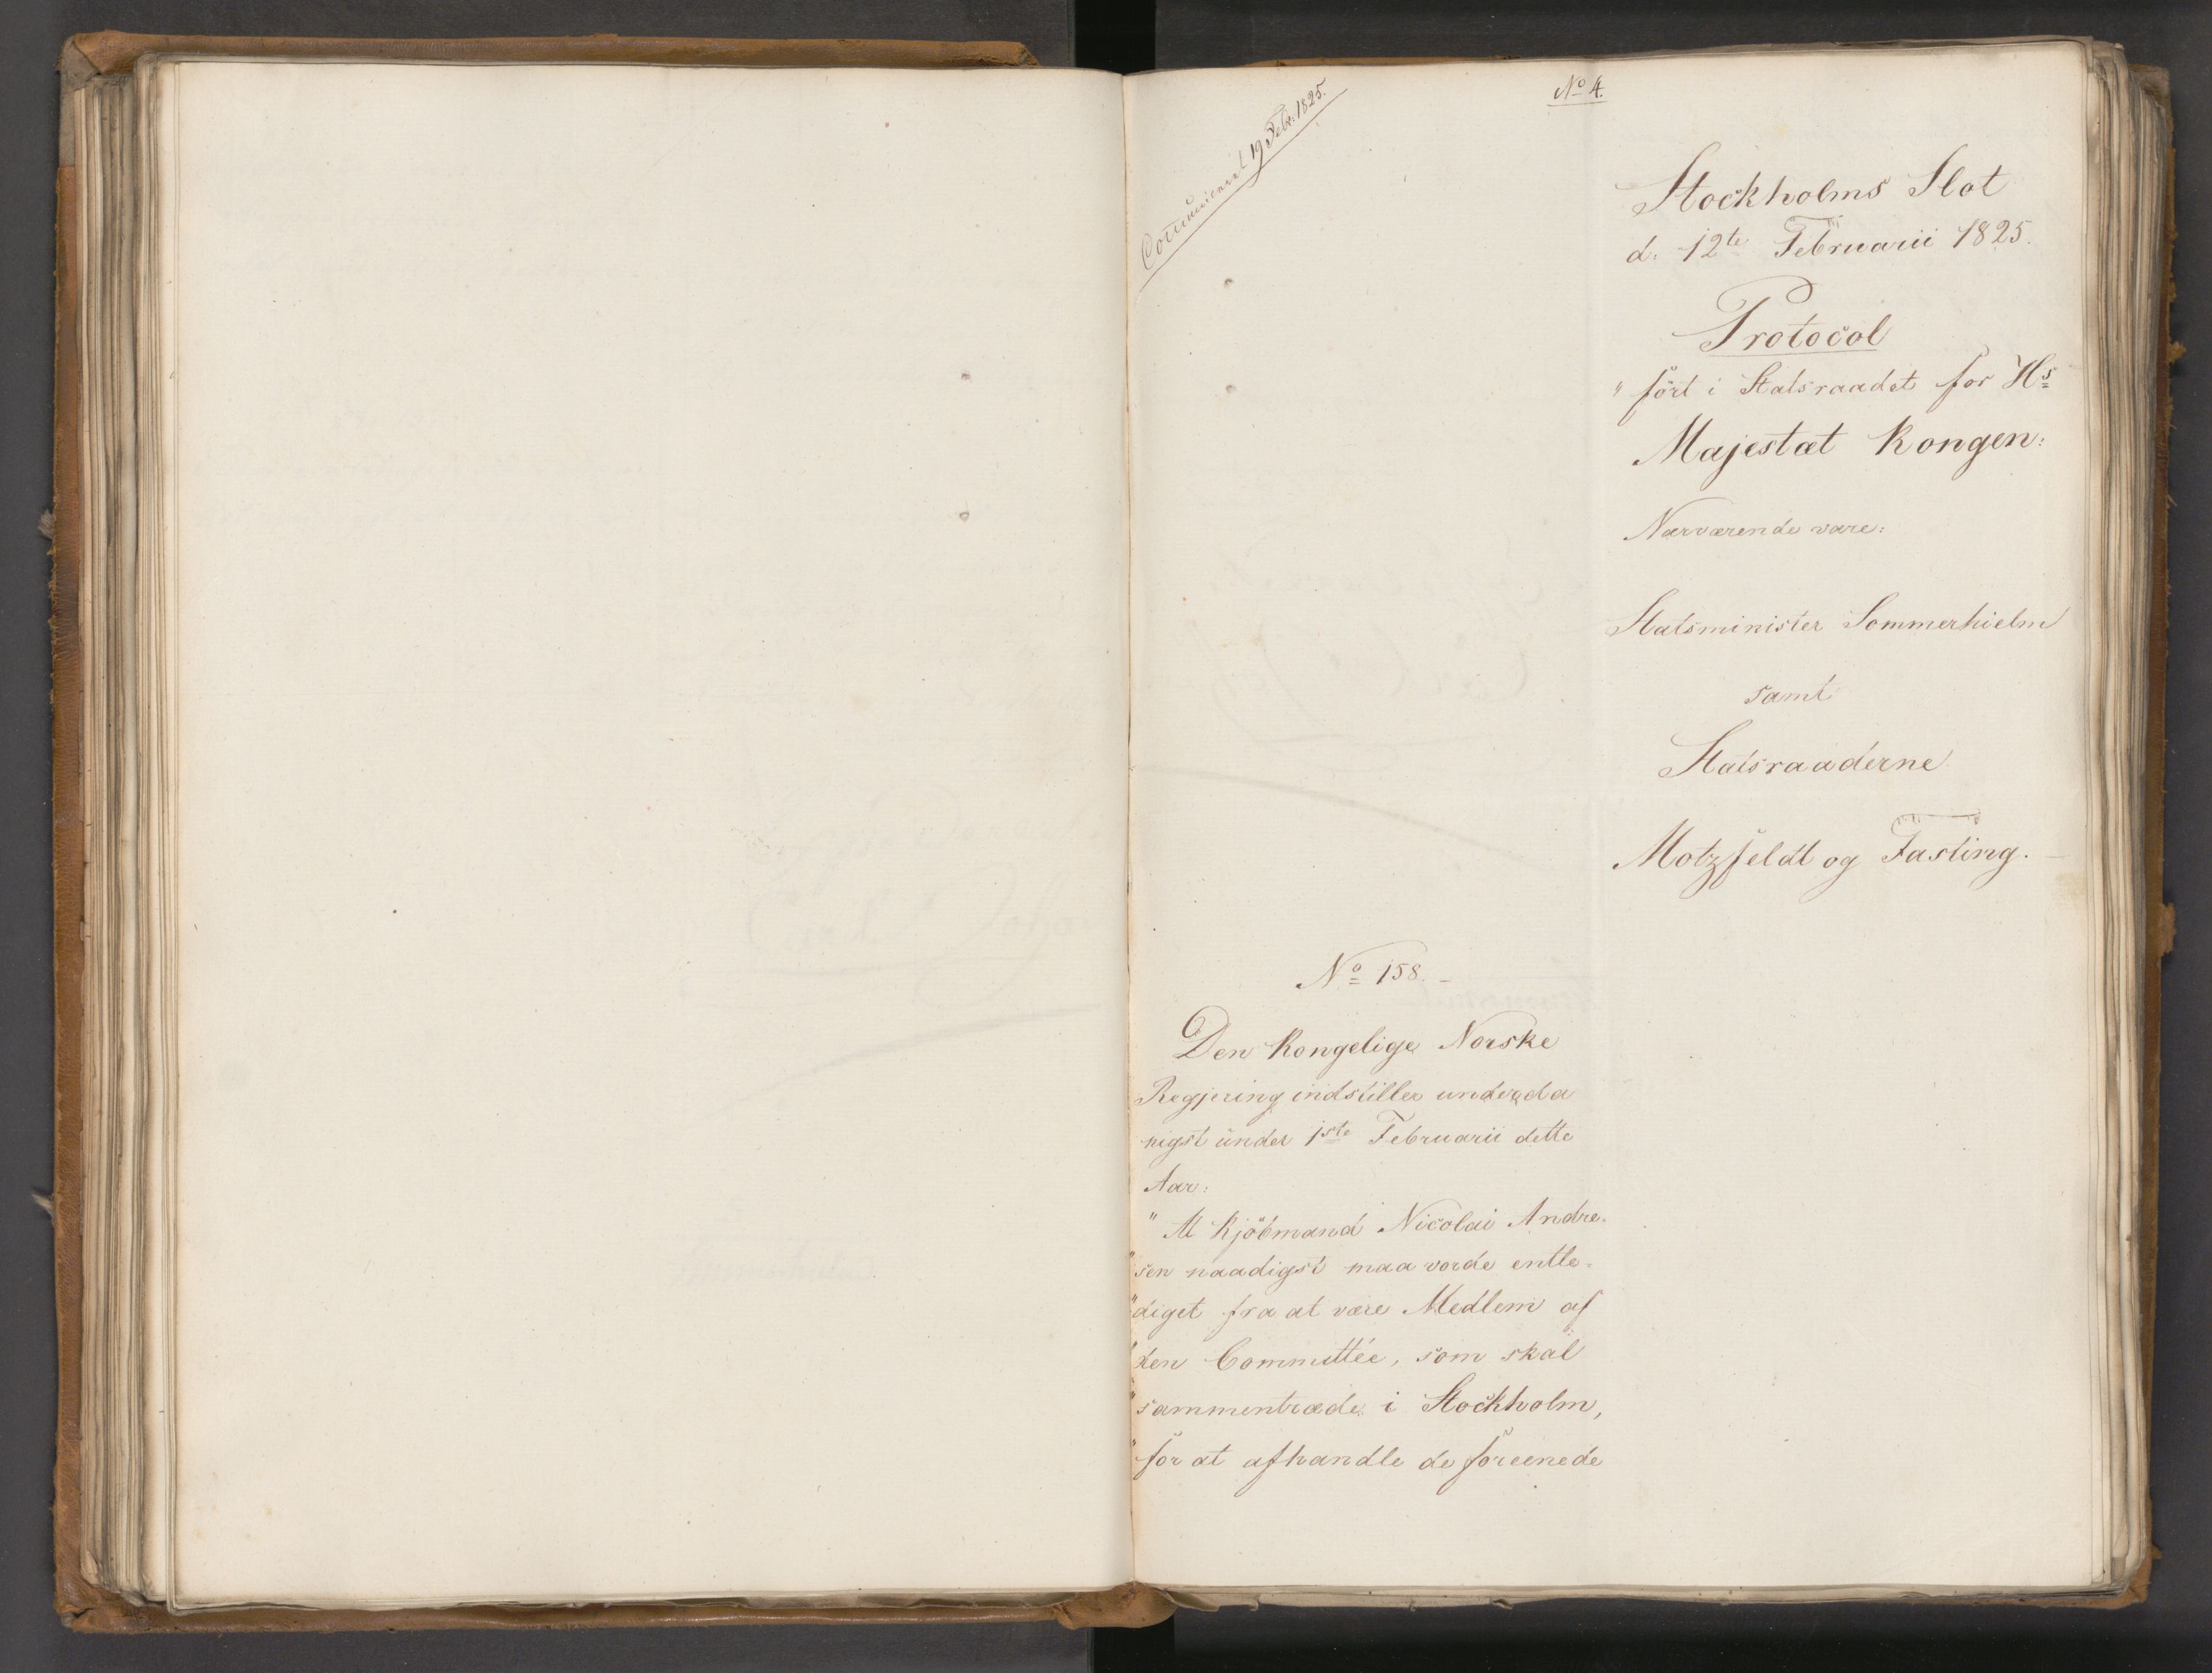 No 4.
Communiceret 19 Febr: 1825.
Stockholms Slot
d. 12te Februarii 1825.
Protocol
" fört i Statsraadet for Hs
Majestæt Kongen:
Nærværende vare:
Statsminister Sommerhielm
samt
Statsraaderne
Motzfeldt og Fasting.
No 158.
Den Kongelige Norske
Regjering indstiller underda
nigst under 1ste Februarii dette
Aar:
" At Kjöbmand Nicolai Andre-
" sen naadigst maa vorde entle-
" diget fra at være Medlem af
" den Committée, som skal
" sammentræde i Stockholm,
" for at afhandle de foreenede